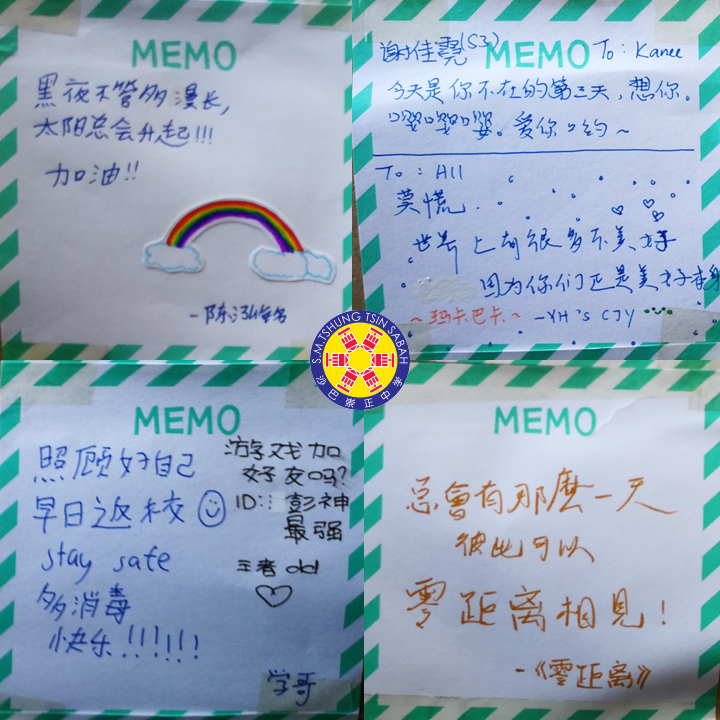 MEMO
黑夜不管多漫长，
太阳总会升起!!!
加油!!
谢佳霓(S3)
MEMO
To: Kanee
今天是你不在的第三天，想你。
嘤嘤嘤。爱你口约~
To: All
莫慌.
世界上有很多不美好
因为你们正是美好本身
~玛卡巴卡~ -YH's CJY
S.M.TSHUNG TSIN SABAH
沙巴崇正中学
MEMO
照顾好自己
早日返校
stay safe
多消毒
快乐!!!!!!
游戏加
好友吗?
ID: 彭神
最强
王者 old
学哥
MEMO
总會有那麼一天
彼此可以
零距离相見!
-《零距离》